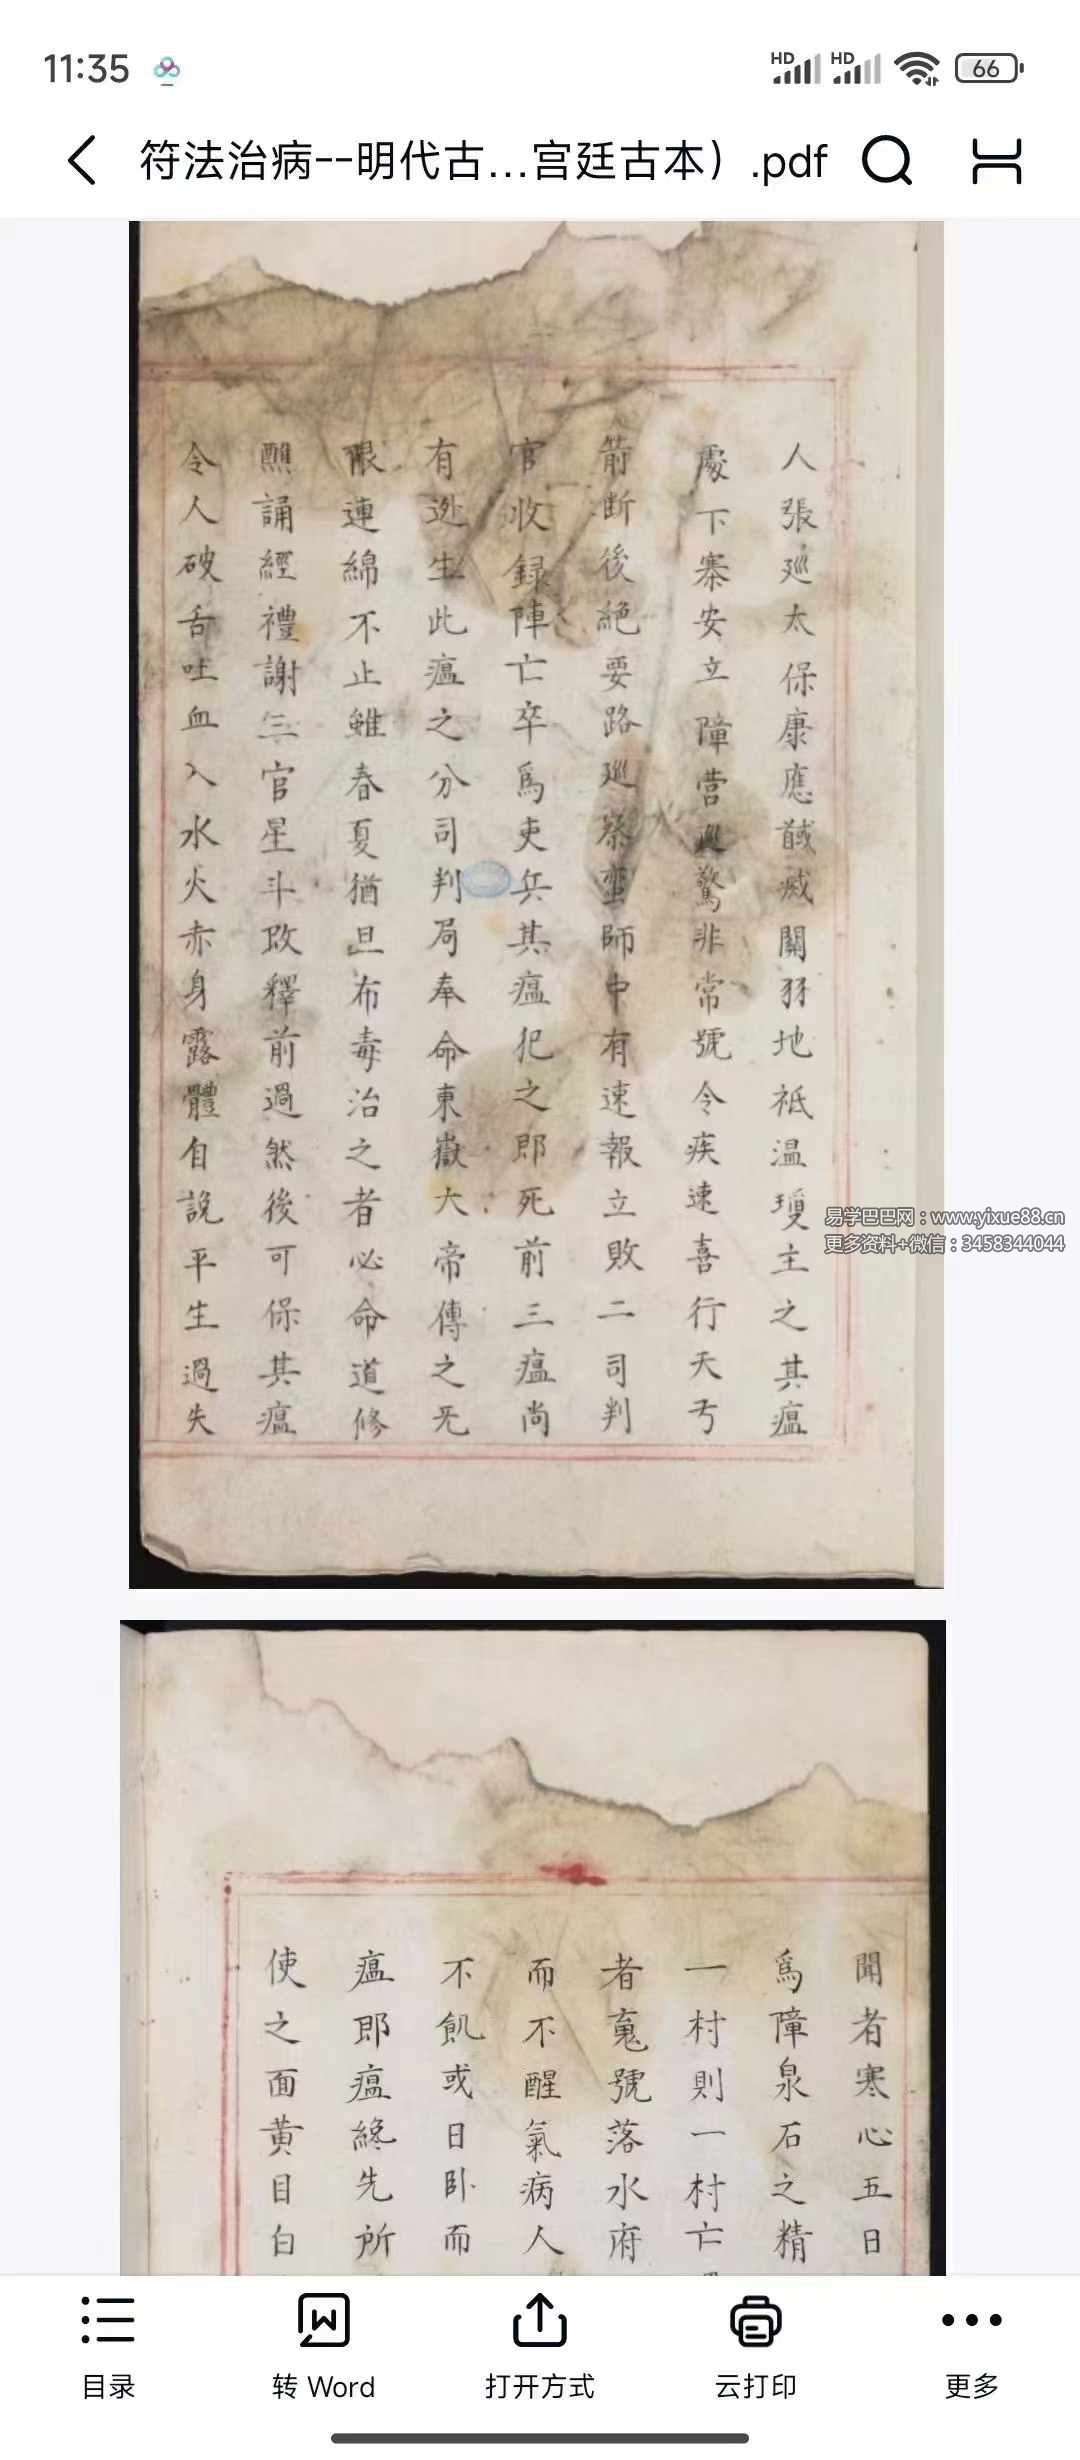 11:35
HD HD 66
符法治病--明代古...宫廷古本）.pdf
人張巡太保康應馘滅關羽地祗温瓊主之其瘟
處下寨安立障營巡驚非常號令疾速喜行天丂
箭斷後絕要路巡察蛮師中有速報立敗二司判
官收録陣亡卒爲吏兵其瘟犯之即死前三瘟尚
有逃生此瘟之分司判局奉命東嶽大帝傳之死
限連綿不止雖春夏猶旦布毒治之者必命道修
醮誦經禮謝三官星斗改釋前過然後可保其瘟
令人破舌吐血入水火赤身露體自說平生過失
易学巴巴网：www.yixue88.cn
更多资料+微信：3458344044
聞者寒心五日
爲障泉石之精
一村則一村亡
者䰟號落水府
而不醒氣病人
不飢或日卧而
瘟即瘟終先所
使之面黄目白
目录
转 Word
打开方式
云打印
更多